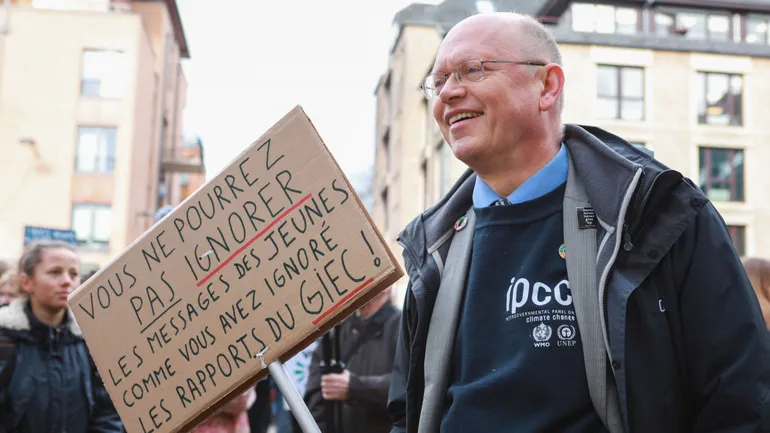 VOUS NE POURREZ
PAS IGNORER
LES MESSAGES DES JEUNES
COMME VOUS AVEZ IGNORÉ
LES RAPPORTS DU GIEC !
ipcc
INTERGOVERNMENTAL PANEL ON
climate change
WMO
UNEP